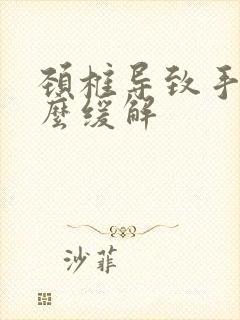 颈柱导致手
麽缓解
沙菲